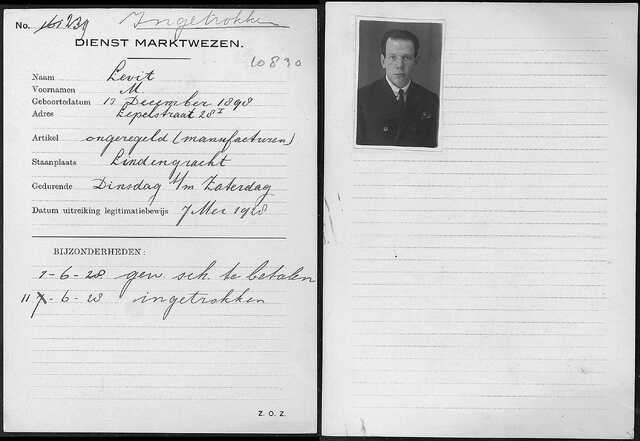 No. 161239 Ingetrokken
DIENST MARKTWEZEN.
10830
Naam Levit
Voornamen M.
Geboortedatum 12 December 1898
Adres Lepelstraat 28 I
Artikel ongeregeld (manufacturen)
Staanplaats Lindengracht
Gedurende Dinsdag t/m Zaterdag
Datum uitreiking legitimatiebewijs 7 Mei 1928
BIJZONDERHEDEN:
1-6-28. gew. sch. te betalen
11 7-6-28 ingetrokken
Z. O. Z.